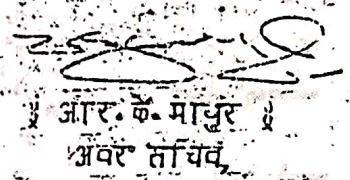 ॥ आर. के. माथुर ॥
अवर सचिव,